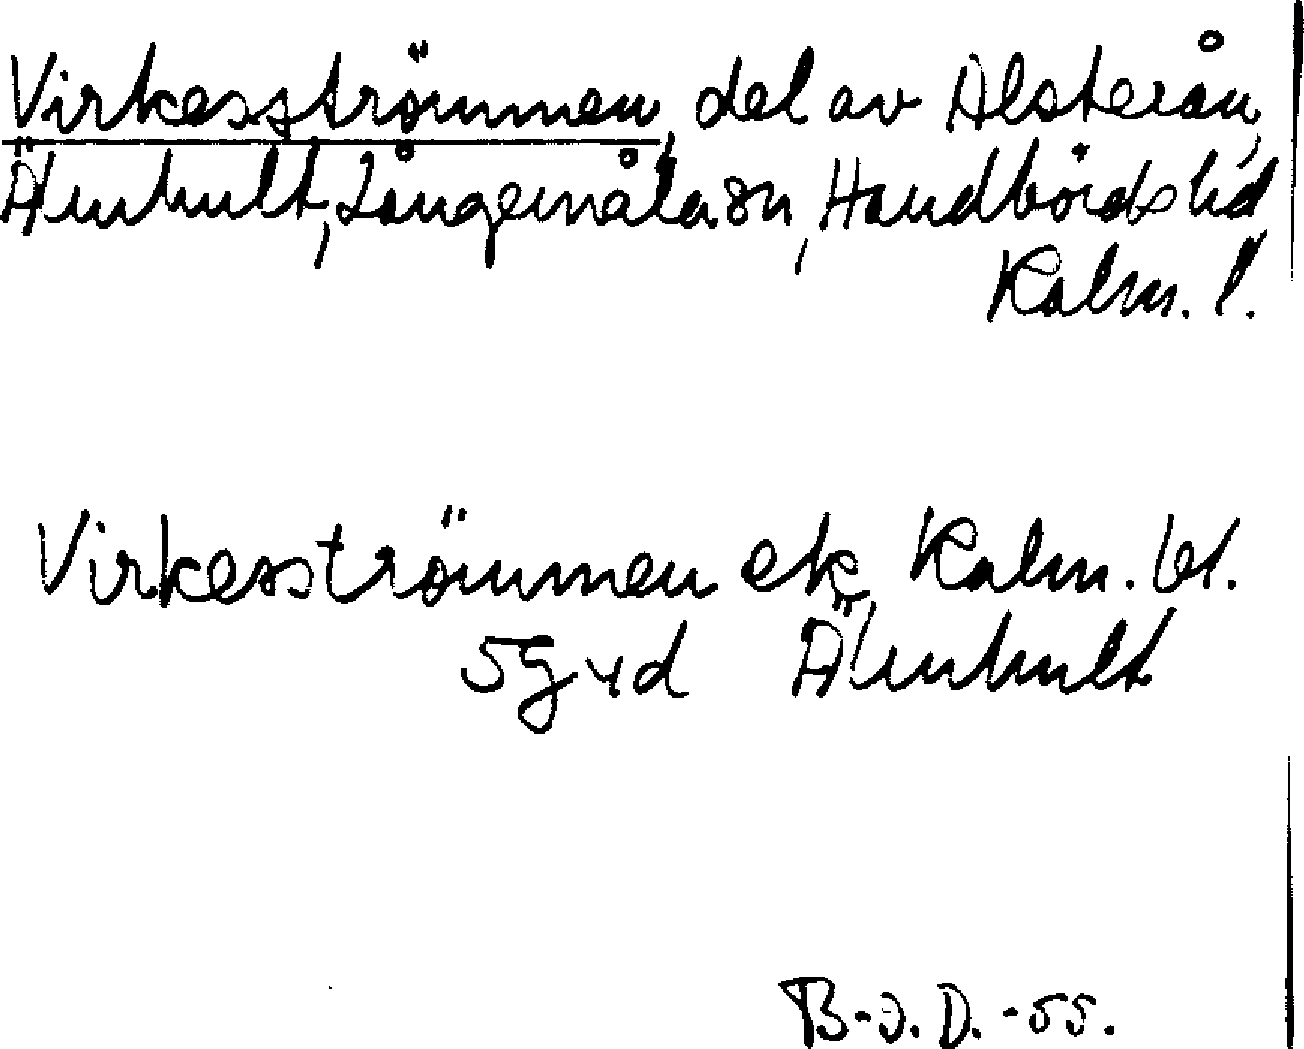 Virkesströmmen, del av Alsterån,
Älmhult, Långemåla sn, Handbörds hd
Kalm. l.
Virkesströmmen ek. Kalm. bl.
5G yd Älmhult
B-J. D. -55.